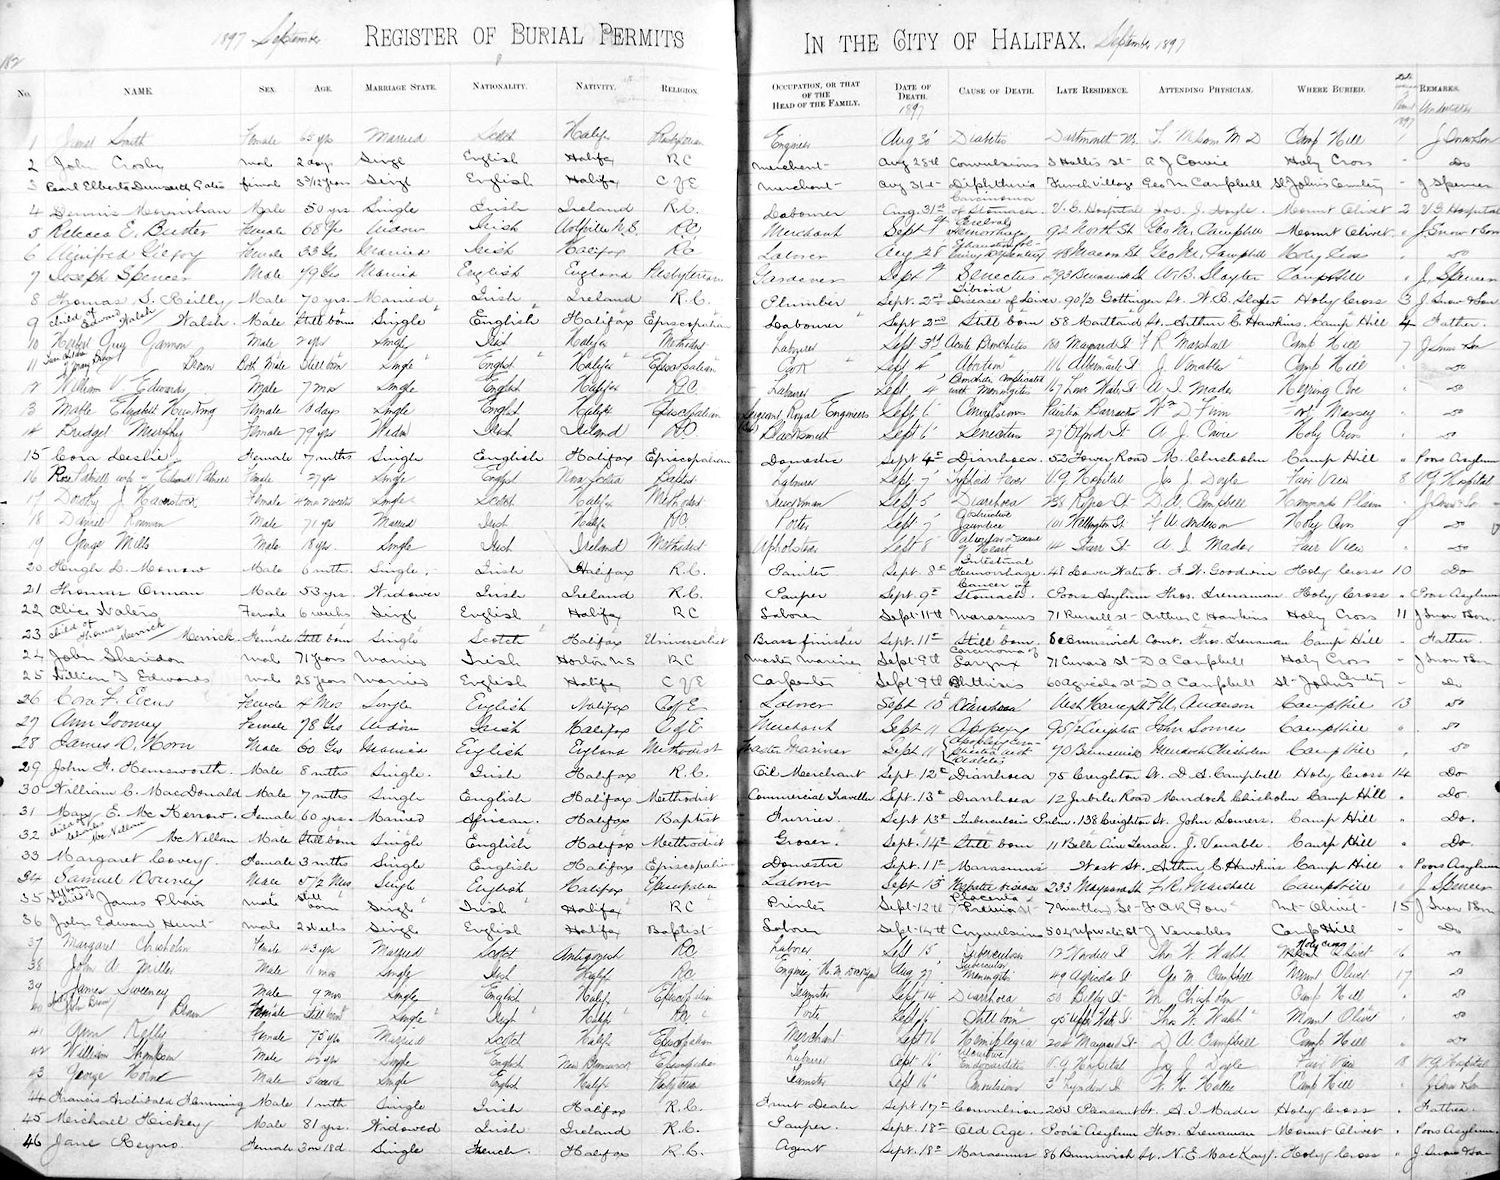 182
1897 September REGISTER OF BURIAL PERMITS IN THE CITY OF HALIFAX. September 1897
No. NAME. SEX. AGE. MARRIAGE STATE. NATIONALITY. NATIVITY. RELIGION. OCCUPATION, OR THAT OF THE HEAD OF THE FAMILY. DATE OF DEATH. 1897 CAUSE OF DEATH. LATE RESIDENCE. ATTENDING PHYSICIAN. WHERE BURIED. 1897 REMARKS. Undertaker
1 Smith Female 65 yrs Married Scotch Halifx Presbyterian Engineer Aug 30 Diabetes Dartmouth M D Camp Hill J Snow & Son
2 John Crosby male 2 days Single English Halifax RC merchant Aug 28th Convulsions 3 Hollis St A J Cowie Holy Cross Do
3 Pearl Elberta Dunsworth Gates female 3 3/12 years Single English Halifax C of E merchant Aug 31st Diphtheria French Village Geo M Campbell St Johns Cemetery J Spencer
4 Dennis Moynihan Male 50 yrs. Single Irish Ireland R.C. Labourer Aug. 31st Carcinoma of Stomach V. G. Hospital Jas. J. Doyle Mount Olivet 2 V.G Hospital
5 Rebecca E. Butler Female 68 Yrs Widow Irish Wolfville N.S. RC Merchant Sept 1st Cerebral Hemorrhage 92 North St Geo M. Campbell Mount Olivet J. Snow & Son
6 Female 33 Yrs Married Irish Halifax RC Laborer Aug 28 48 Macara St Geo M. Campbell Holy Cross
7 Joseph Spencer Male 79 Yrs Married English England Presbyterian Gardener Sept 1st Senectus 293 Brunswick St W. B. Slayter Camp Hill J. Spencer
8 Thomas S. Reilly Male 70 yrs. Married Irish Ireland R.C. Plumber Sept. 2nd Fibroid Disease of Liver 90 1/2 Gottingen St. W. B. Slayter Holy Cross 3 J. Snow & Son
9 Child of Edward Walsh Walsh. Male Still born Single English Halifax Episcopalian Labourer Sept 2nd Still born 58 Maitland St. Arthur C. Hawkins. Camp Hill 4 Father.
10 Guy Gannon Male 2 yrs Single Irish Halifx Methodist Labourer Sept 3rd Acute Bronchitis Maynard St F R. Marshall Camp Hill 7 J. Snow & Son
11 Brown Both Male Still born Single English Halifx Episcopalian Cook Sept 4 Abortion 116 Albemarle St J. Venables Camp Hill Do
12 William V Edwards Male 7 mos Single English Halifx R.C. Labourer Sept 4 Bronchitis complicated with Meningitis 167 Lower Water St A. I. Mader Herring Cove Do
13 Mable Elizabeth Female 10 days Single English Halifx Episcopalian Sergeant Royal Engineers Sept 6 Convulsions Pavilion Barracks Wm D Finn Fort Massey Do
14 Bridget Murphy Female 79 yrs Widow Irish Ireland RC. Blacksmith Sept 6 Senectus 27 St A. J. Cowie Holy Cross Do
15 Cora Leslie Female 7 mths Single English Halifax Episcopalian Domestic Sept 4th Diarrhoea 52 Tower Road M. Chisholm Camp Hill Poors Asylum
16 Rose wife of Edward Female 27 yrs Single English Nova Scotia Baptist Labourer Sept 7 Typhoid Fever V.G Hospital Jas J. Doyle Fair View 8 V.G Hospital
17 Dorothy J Haverstock Female 4 mo 2 weeks Single Scotch Halifx Methodist Sept 5 Diarrhoea D. A. Campbell Hammonds Plains J. Snow & Son
18 Daniel Male 71 yrs Married Irish Halifx RC. Porter Sept 7 Obstructive Jaundice 101 Wellington St F W Anderson Holy Cross 9 Do
19 George Mills Male 18 yrs Single Irish Ireland Methodist Upholsterer Sept 8 Valvular Disease of Heart 14 Starr St. A. I. Mader Fair View Do
20 Hugh D. Morrow Male 6 mths. Single. Irish Halifax R.C. Painter Sept. 8th Intestinal Hemorrhage 48 Lower Water St. F. W. Goodwin Holy Cross 10 Do
21 Thomas Orman Male 53 yrs. Widower Irish Ireland R.C. Pauper Sept. 9th Cancer of Stomach Poors Asylum Thos. Trenaman Holy Cross Poors Asylum
22 Alice Waters Female 6 weeks Single English Halifax RC Laborer Sept 11th Marasmus 71 Russell St Arthur C Hawkins Holy Cross 11 J. Snow & Son
23 Child of Thomas Merrick Merrick. Female Still born Single Scotch Halifax Universalist Brass finisher Sept. 11th Still born. Brunswick Court. Thos. Trenaman Camp Hill Father.
24 John Sheridon male 71 years Married Irish Horton NS RC Master Mariner Sept 9th Carcinoma of Larynx 71 Cunard St D A Campbell Holy Cross J Snow & Son
25 William J Edwards male 28 years Married English Halifax C of E Carpenter Sept 9th Phthisis 60 Agricola St D A Campbell St Johns Cemtry Do
26 Cora F. Female 4 Mos Single English Halifax C of E Laborer Sept 10 Diarrhoea West Young St F. W. Anderson Camp Hill 13 Do
27 Ann Toomey Female 78 Yrs Widow Irish Halifax C of E Merchant Sept 11 Apoplexy 95 1/2 Creighton John Somers Camphill Do
28 James D. Horn Male 60 Yrs Married English England Methodist Master Mariner Sept. 11 Diabetes 70 Brunswick Murdoch Chisholm Camphill Do
29 John H. Hemsworth. Male 8 mths Single. Irish Halifax R.C. Oil Merchant Sept. 12th Diarrhoea 75 Creighton St. D. A. Campbell Holy Cross 14 Do
30 William C. MacDonald Male 7 mths Single English Halifax Methodist Commercial Traveller Sept. 13th Diarrhoea 12 Jubilee Road Murdoch Chisholm Camp Hill Do
31 Mary E. McKerrow. Female 60 years. Married African. Halifax Baptist Furrier Sept 13th Tuberculosis Pulm. 138 Creighton St. John Somers. Camp Hill Do.
32 Child of McNellan McNellan Male Still born Single English Halifax Methodist Grocer. Sept. 14th Still born 11 Belle Aire Terrace J. Venable Camp Hill Do.
33 Margaret Covey. Female 3 mths Single English Halifax Episcopalian Domestic Sept. 11th Marasmus West St. Arthur C Hawkins Camp Hill Poors Asylum
34 Samuel Downey Male 5 1/2 Mos Single English Halifax Episcopalian Laborer Sept 13 Hepatic disease 233 Maynard St F. R. Marshall Camphill J. Spencer
35 child of James Phair male Still born Single Irish Halifax RC Printer Sept 12th Placenta Previa 7 Maitland St F A R Gow Mt Olivet 15 J Snow & Son
36 John Edward Hunt male 2 weeks Single English Halifax Baptist Laborer Sept 14th Convulsions 504 Up Water St J Venables Camp Hill Do
37 Margaret Chisholm Female 43 yrs Married Scotch Antigonish RC Laborer Sept 15 Tuberculosis 12 St Tho W. Walsh Holy Cross Mount Olivet 16 Do
38 John A Miller Male 11 mos Single Irish Halifx RC Engineer H. M. Dockyard Aug 27 Tubercular Meningitis 49 Agricola St Geo M. Campbell Mount Olivet 17 Do
39 James Sweeney Male 9 mos Single English Halifx Episcopalian Teamster Sept 14 Diarrhoea 50 Bilby St M. Chisholm Camp Hill Do
40 John Brown Brown Female Still born Single Irish Halifx RC Porter Sept Still born 95 Upper Water St Tho W. Walsh Mount Olivet Do
41 Ann Kelly Female 75 yrs Married Scotch Halifx Episcopalian Merchant Sept 16 Hemiplegia 204 Maynard St D A. Campbell Camp Hill Do
42 William Thompson Male 42 yrs Single English New Brunswick Episcopalian Labourer Sept 16 Ulcerative Endocarditis V. G Hospital Jas J. Doyle Fair View 18 V G Hospital
43 George Horne Male 5 weeks Single English Halifx Presbyterian Teamster Sept 16 Convulsions 3 Lynden St W. H. Hattie Camp Hill J. Snow & Son
44 Francis Archibald Flemming Male 1 mth Single Irish Halifax R.C. Fruit Dealer Sept. 17th Convulsions 253 Pleasant St. A. I. Mader Holy Cross Father.
45 Merchael Hickey Male 81 yrs. Widowed Irish Ireland R.C. Pauper. Sept. 18th Old Age. Poors Asylum Thos. Trenaman Mount Olivet Poors Asylum.
46 Jane Reyno Female 3 m 18 d. Single French. Halifax R.C. Agent Sept. 18th Marasmus 86 Brunswick St. N. E. MacKay. Holy Cross J. Snow & Son